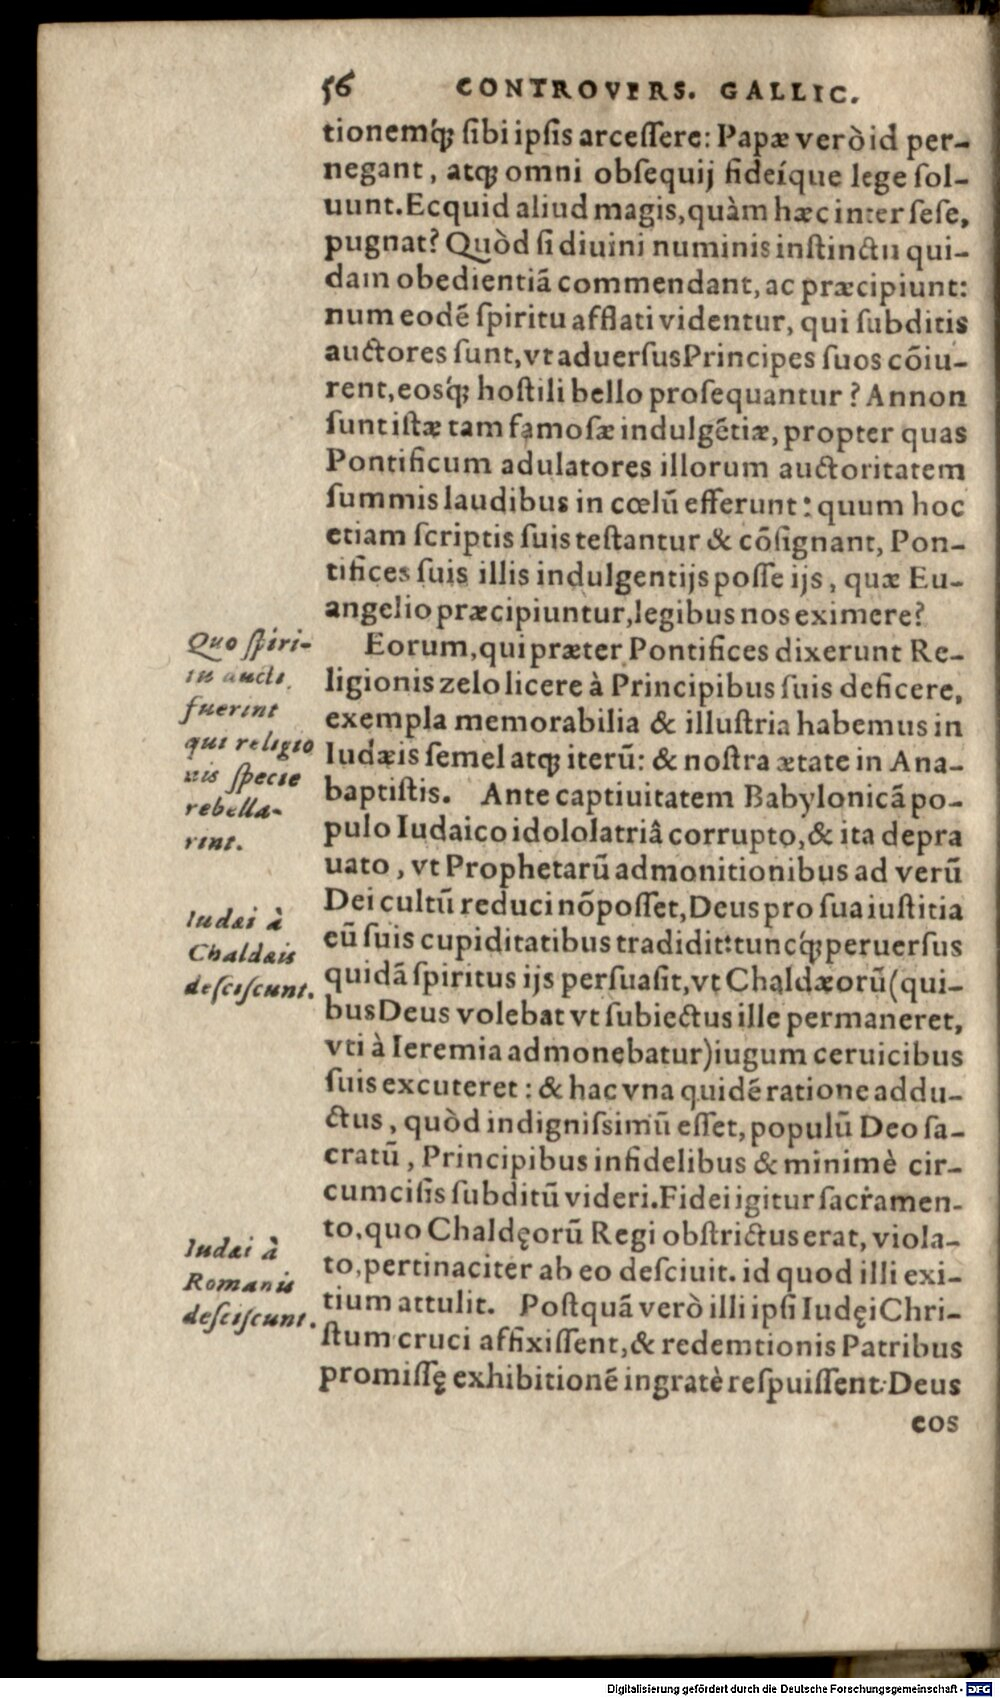 56 CONTROVERS. GALLIC.
tionemq́ꝫ ſibi ipſis arceſſere: Papæ verò id per-
negant, atqꝫ omni obſequij fideíque lege ſol-
uunt. Ecquid aliud magis, quàm hæc inter ſeſe,
pugnat? Quòd ſi diuini numinis inſtinctu qui-
dam obedientiã commendant, ac præcipiunt:
num eodẽ ſpiritu afflati videntur, qui ſubditis
auctores ſunt, vt aduerſus Principes ſuos cõiu-
rent, eosq́ꝫ hoſtili bello proſequantur? Annon
ſunt iſtæ tam famoſæ indulgẽtiæ, propter quas
Pontificum adulatores illorum auctoritatem
ſummis laudibus in cœlũ efferunt: quum hoc
etiam ſcriptis ſuis teſtantur & cõſignant, Pon-
tifices ſuis illis indulgentijs poſſe ijs, quæ Eu-
angelio præcipiuntur, legibus nos eximere?
Quo ſpiri-
tu aucti
fuerint
qui religio
nis ſpecie
rebella-
rint.
Eorum, qui præter Pontifices dixerunt Re-
ligionis zelo licere à Principibus ſuis deficere,
exempla memorabilia & illuſtria habemus in
Iudæis ſemel atqꝫ iterũ: & noſtra ætate in Ana-
baptiſtis. Ante captiuitatem Babylonicã po-
pulo Iudaico idololatriâ corrupto, & ita depra
uato, vt Prophetarũ admonitionibus ad verũ
Dei cultũ reduci nõ poſſet, Deus pro ſua iuſtitia
eũ ſuis cupiditatibus tradidit: tuncq́ꝫ peruerſus
quidã ſpiritus ijs perſuaſit, vt Chaldæorũ (qui-
bus Deus volebat vt ſubiectus ille permaneret,
vti à Ieremia admonebatur) iugum ceruicibus
ſuis excuteret: & hac vna quidẽ ratione addu-
ctus, quòd indigniſsimũ eſſet, populũ Deo ſa-
cratũ, Principibus infidelibus & minimè cir-
cumciſis ſubditũ videri. Fidei igitur ſacramen-
to, quo Chaldęorũ Regi obſtrictus erat, viola-
to, pertinaciter ab eo deſciuit. id quod illi exi-
tium attulit. Poſtquã verò illi ipſi Iudęi Chri-
ſtum cruci affixiſſent, & redemtionis Patribus
promiſſę exhibitionẽ ingratè reſpuiſſent: Deus
Iudæi à
Chaldæis
deſciſcunt.
Iudæi à
Romanis
deſciſcunt.
eos
Digitalisierung gefördert durch die Deutsche Forschungsgemeinschaft - DFG